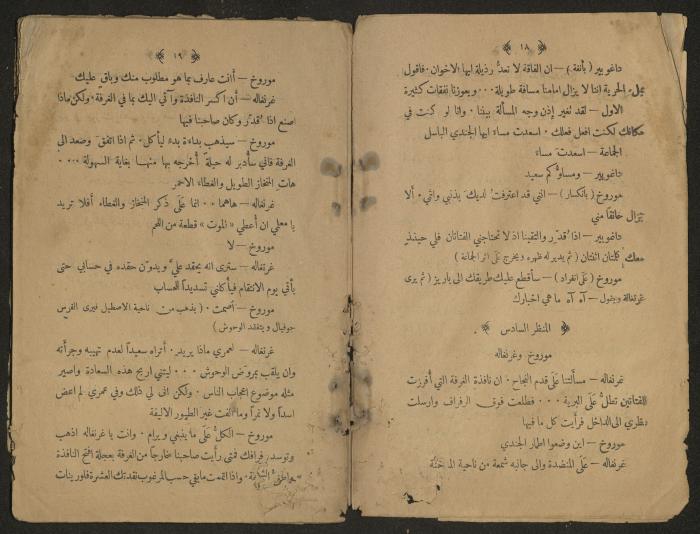 ﴿ ١٨ ﴾
داغوبير ( بأنفة ) — ان الفاقة لا تعدّ رذيلة ايها الاخوان . فاقول
الحرية اننا لا يزال امامنا مسافة طويلة ٠٠٠ ويعوزنا نفقات كثيرة
الاول — لقد تغير إذن وجه المسألة بيننا . وانا لو كنت في
مكانك لكنت افعل فعلك . اسعدت مساء ايها الجندي الباسل
الجماعة — اسعدتَ مساءً
داغوبير — ومساؤكم سعيد
موروخ ( بانكسار ) — انني قد اعترفتُ لديك بذنبي وانني . ألا
تزال خانقًا مني
داغوبير — اذا قُدّر والتقينا اذ لا تحتاجني الفتاتان فلي حينئذٍ
معك كلمتان اثنتان ( ثم يدير له ظهره ويخرج على اثر الجماعة )
موروخ ( على انفراد ) — سأقطع عليك طريقك الى باريز ( ثم يرى
غرنغاله ويقول — آه آه ما هي اخبارك
﴿ المنظر السادس ﴾
موروخ وغرنغاله
غرنغاله — مسألتنا على قدم النجاح . ان نافذة الغرفة التي أُفرزت
للفتاتين تطلّ على البرية ٠٠٠ فطلعت فوق الرفراف وارسلت
نظري الى الداخل فرأيت كل ما فيها
موروخ — اين وضعوا اطمار الجندي
غرنغاله — على المنضدة والى جانبه شمعة من ناحية
﴿ ١٩ ﴾
موروخ — أأنت عارف بما هو مطلوب منك وباقٍ عليك
غرنغاله — أن اكسر النافذة وآتي اليك بما في الغرفة . ولكن ماذا
اصنع اذا قُدّر وكان صاحبنا فيها
موروخ — سيذهب بداءة بدء ليأكل . ثم اذا اتفق وصعد الى
الغرفة فاني سأدبر له حيلة أُخرجه بها منها بغاية السهولة ٠٠٠٠
هات المنخاز الطويل والغطاء الاحمر
غرنغاله — هاهما ٠٠ انما على ذكر المنخاز والغطاء أفلا تريد
يا معلي ان أعطي « الموت » قطعة من اللحم
موروخ — لا
غرنغاله — سترى انه يحقد عليّ ويدوّن حقده في حسابي حتى
يأتي يوم الانتقام فيأكلني تسديداً للحساب
موروخ — أصمت . ( يذهب من ناحية الاصطبل فيرى الفرس
جوفيال ويتفقد الوحوش )
غرنغاله — لعمري ماذا يريد . أتراه سعيداً لعدم تهيبه وجرأته
وان يلقب بمروض الوحوش ٠٠٠ ليتني اربح هذه السعادة واصير
مثله موضوع اعجاب الناس . ولكن انى لي ذلك وفي عمري لم اعض
اسداً ولا نمراً وما ألفت غير الطيور الاليفة
موروخ — الكلّ على ما ينبغي ويرام . وانت يا غرنغاله اذهب
وتوسد رفرافك فمتى رأيت صاحبنا خارجاً من الغرفة بعجلة افتح النافذة
واذا اتممت ما بقي حسب المرغوب نقدتك العشرة فلورينات